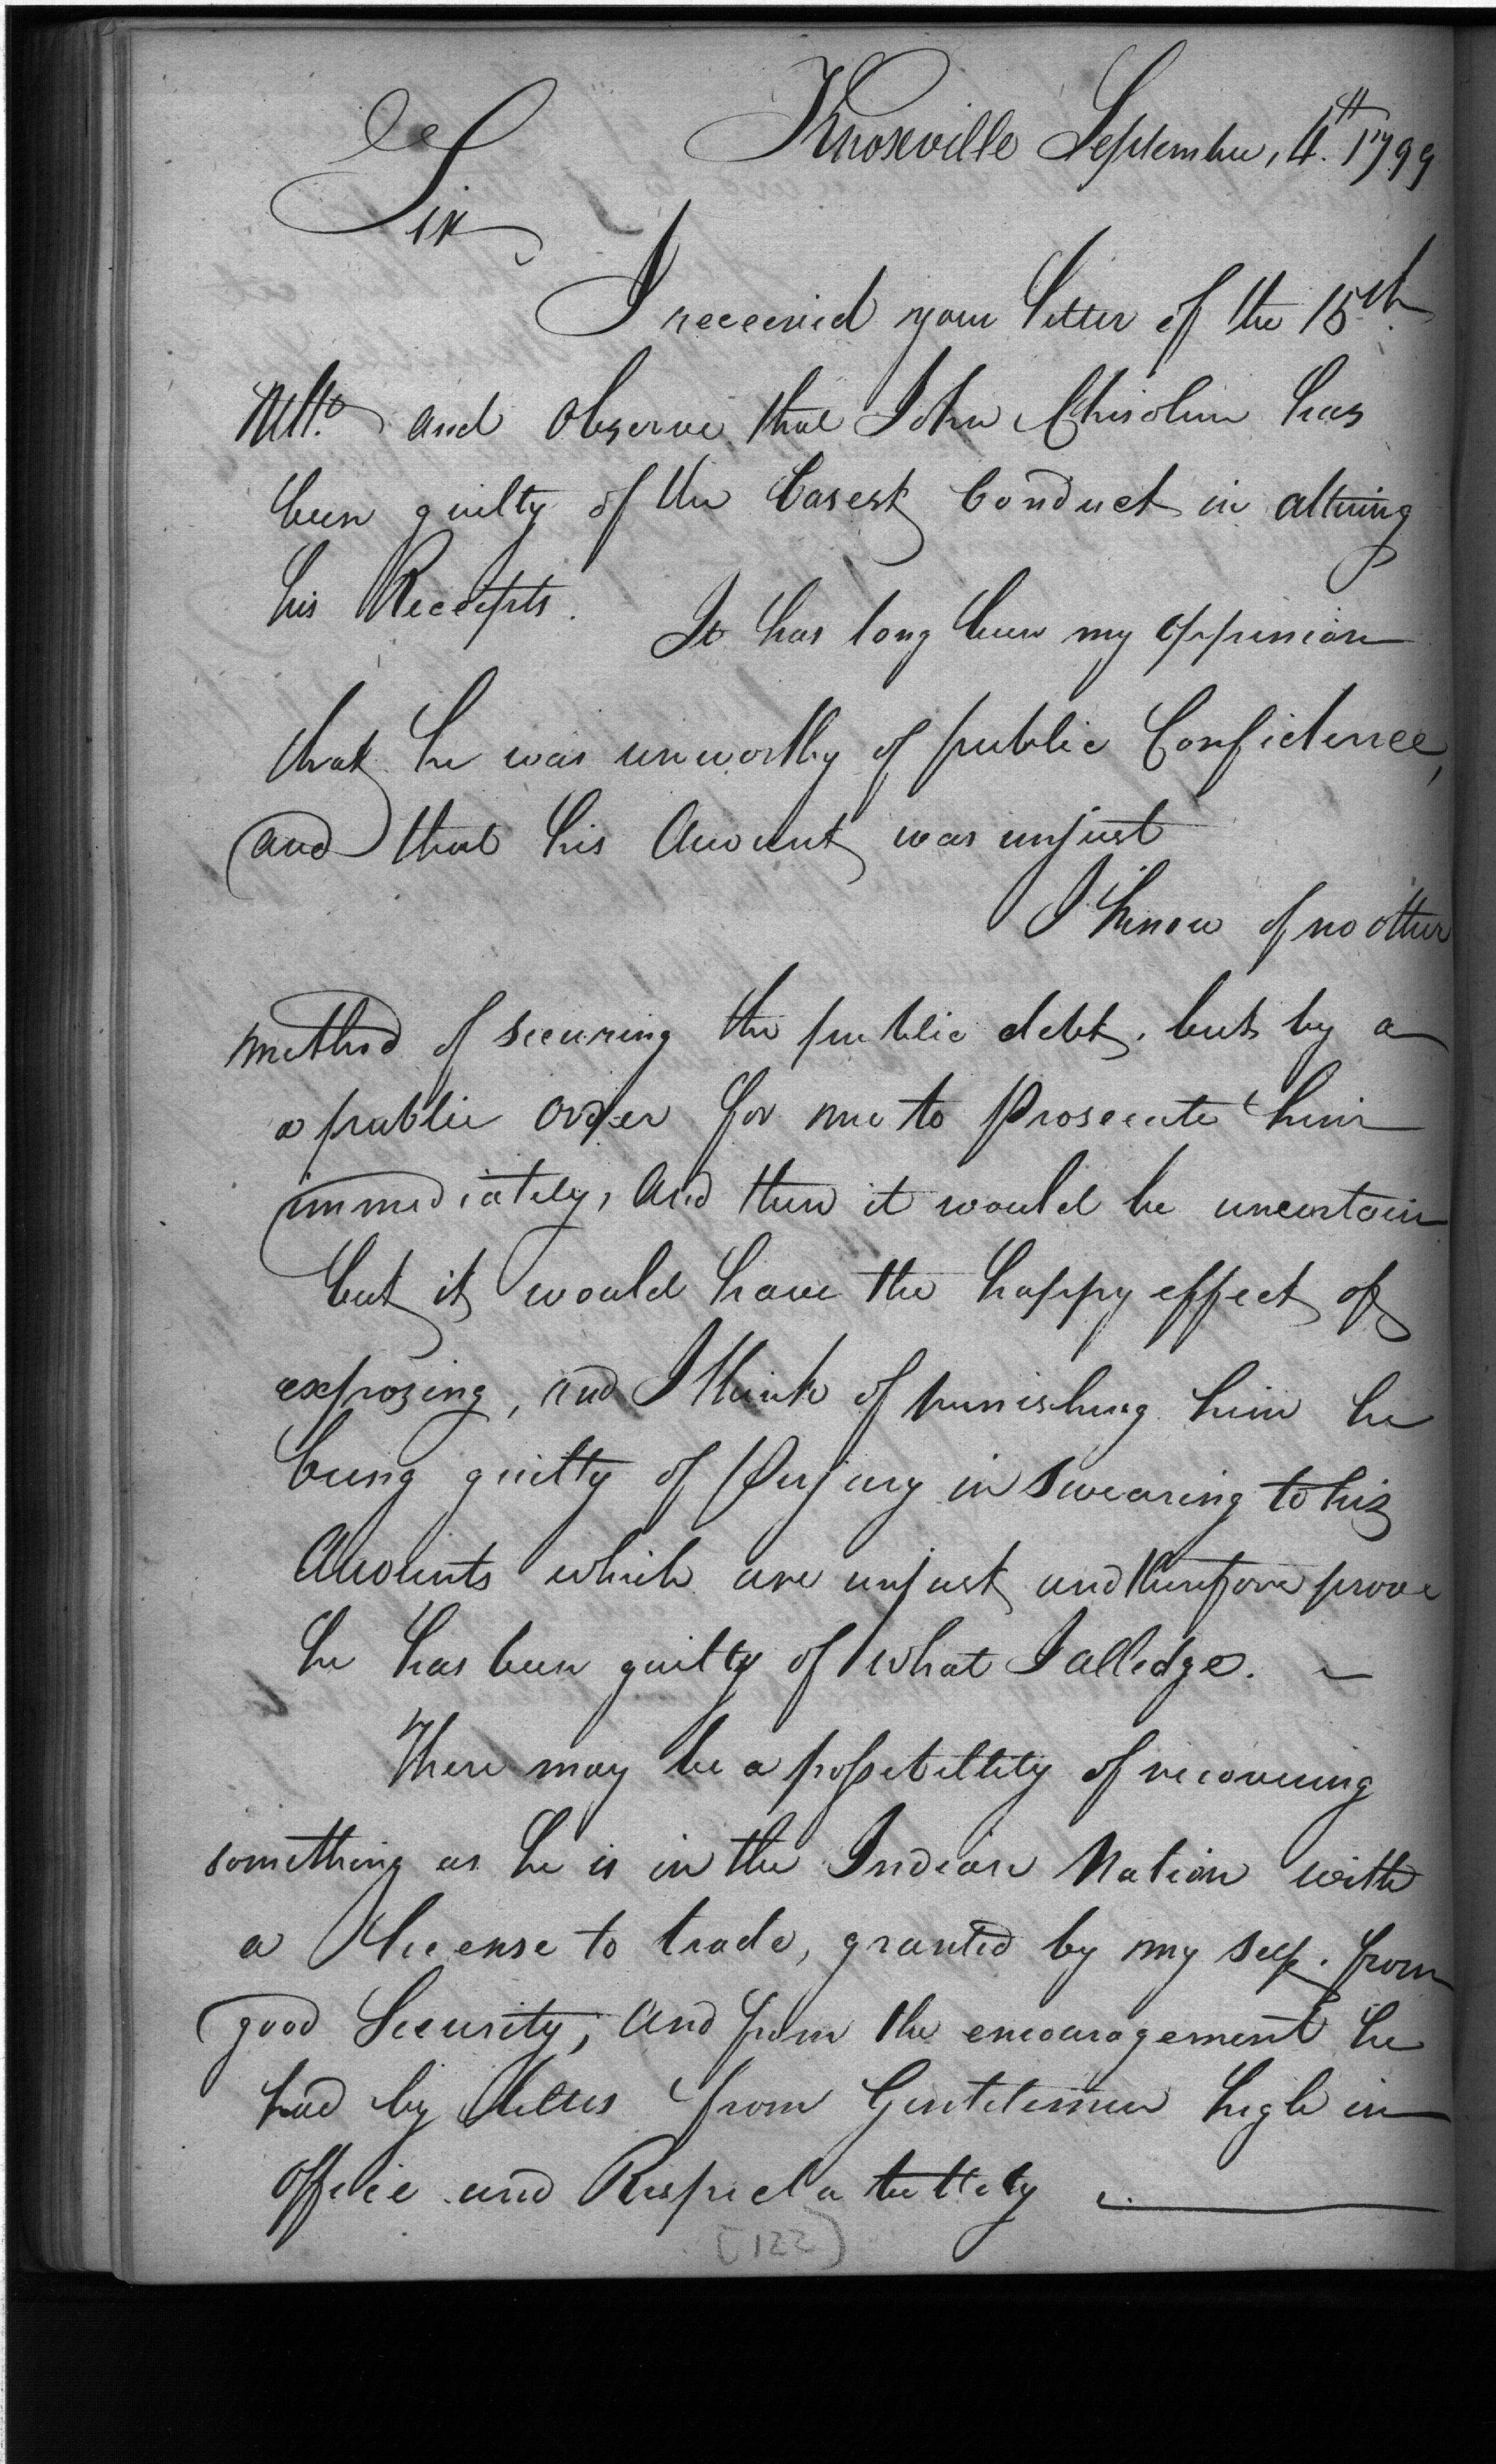 Knoxville September, 4.th 1799
Sir
I received your letter of the 15th
Ulto. and observe that John Chisolm has
been guilty of the basest Conduct in altering
his Receipts. It has long been my oppinion
that he was unworthy of public Confidence,
and that his Account was unjust
I know of no other
method of securing the public debt, but by a
a public order for me to Prosecute him
immediately, and then it would be uncertain
but it would have the happy effect of
exposing, and I think of punishing him he
being guilty of Perjury in swearing to his
Accounts which are unjust and therefore prove
he has been guilty of what I alledge. —
There may be a possibillity of recovering
something as he is in the Indian Nation with
a license to trade, granted by my self. from
good Security; and from the encouragement he
had by letters from Gentlemen high in
office and Respectabillity
[122]